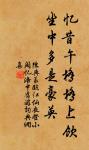 忆昔午桥桥上饮
坐中多是豪英
陈与义临江仙夜登小
阁忆洛中旧游词典网
集